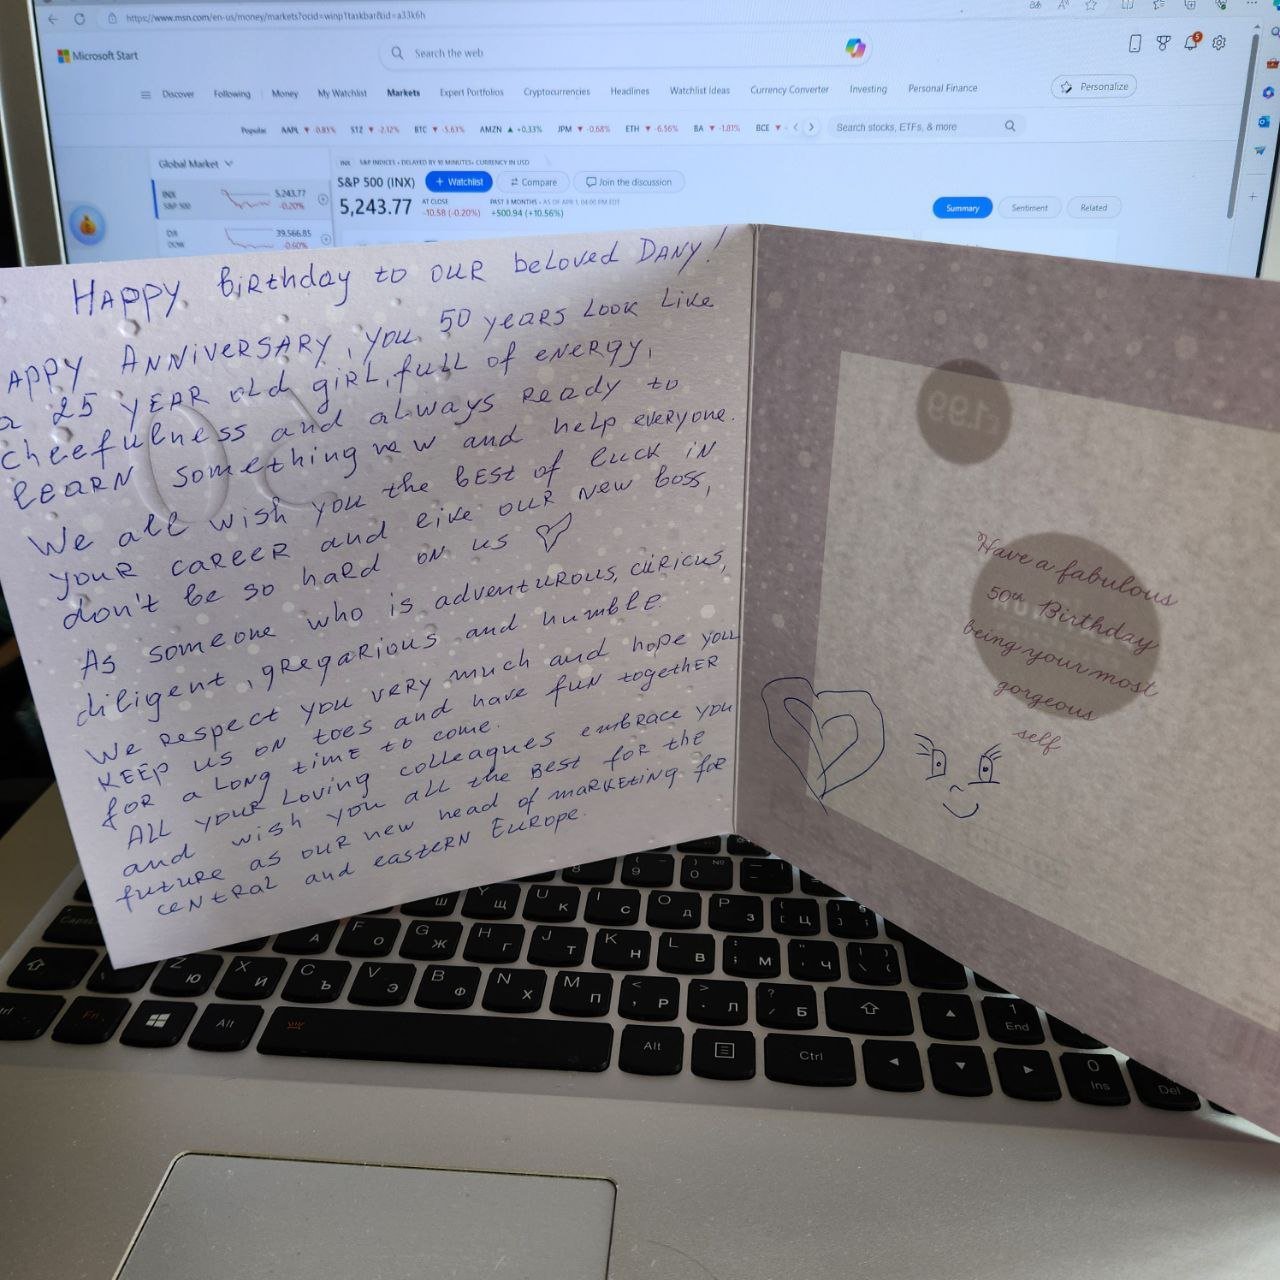 https://www.msn.com/en-us/money/markets?ocid=winp1taskbar&id=a33k6h
Microsoft Start
Search the web
5
Discover Following Money My Watchlist Markets Expert Portfolios Cryptocurrencies Headlines Watchlist Ideas Currency Converter Investing Personal Finance Personalize
Popular AAPL ▼ -0.85% STZ ▼ -2.12% BTC ▼ -5.63% AMZN ▲ +0.33% JPM ▼ -0.68% ETH ▼ -6.56% BA ▼ -1.81% BCE ▼ Search stocks, ETFs, & more
Global Market
INX 5,243.77
S&P 500 -0.20%
DJI 39,566.85
DOW -0.60%
INX S&P INDICES • DELAYED BY 10 MINUTES • CURRENCY IN USD
S&P 500 (INX) + Watchlist Compare Join the discussion
5,243.77 AT CLOSE PAST 3 MONTHS • AS OF APR 1, 04:00 PM EDT
-10.58 (-0.20%) +500.94 (+10.56%)
Summary Sentiment Related
HAPPY BiRthday to OUR beloved DANY!
APPY ANNIVERSARY, you 50 years Look Like
a 25 YEAR old giRL, full of eNeRgy,
cheefulNess and always Ready to
leaRN something new and help everyone.
We all wish you the best of luck iN
youR caReeR and like ouR New boss,
don't be so haRd oN us
As someone who is adventurous, curicus,
diligent, gRegaRious and humble.
We Respect you veRy much and hope you
KEEP us oN toes and have fun togetheR
foR a Long time to come.
ALL youR Loving colleagues embRace you
and wish you all the Best foR the
future as ouR new head of maRKeting foR
ceNtRal and easteRN EuRope.
£1.99
Have a fabulous
50th Birthday
being your most
gorgeous
self
8
( 9
) № 0
Ш
У Щ
U К
I С
O Д
P З
{ [ Ц
} ]
Caps
А
F О
G Ж
H Г
J Т
K Н
L В
: ; М
" ' Ч
| \ (
Z Ю
X Й
C Ъ
V Э
B Ф
N Х
M П
< , Р
> . Л
? / Б
1 End
Fn
Alt
Alt
Ctrl
0 Ins
Del